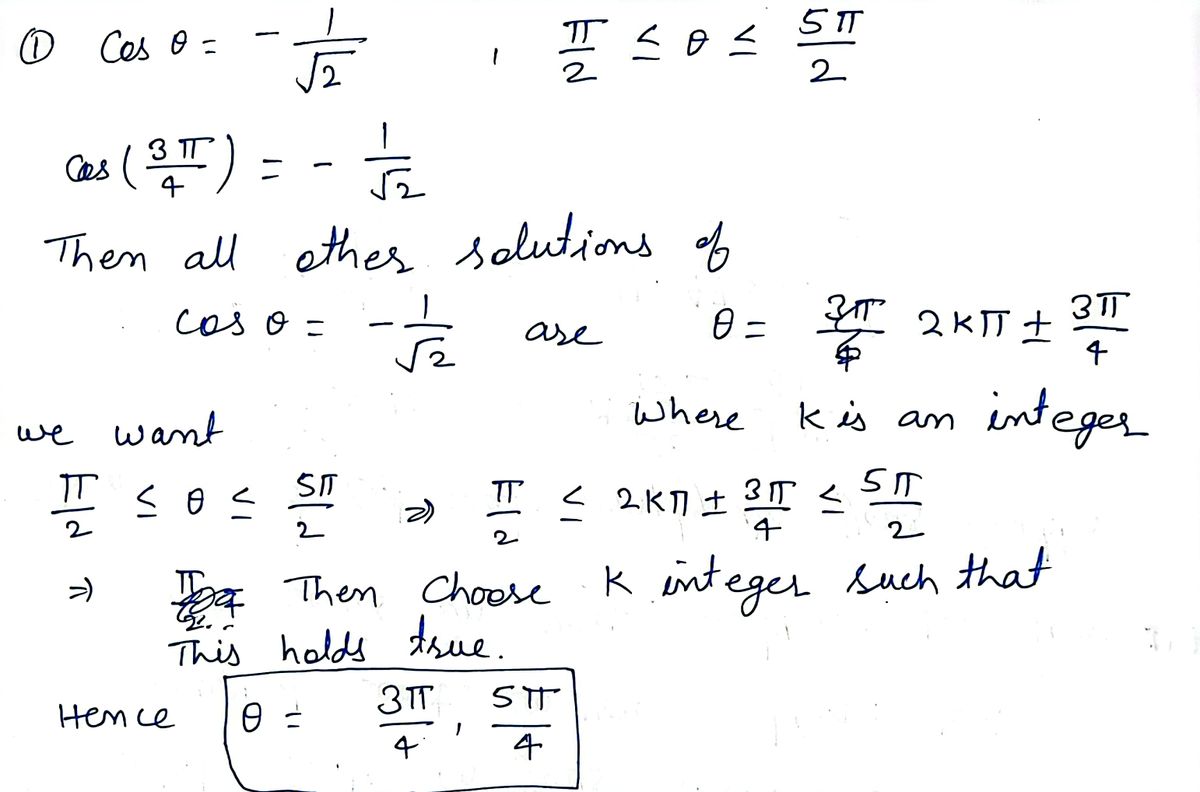 ① Cos θ = - 1/√2 , π/2 ≤ θ ≤ 5π/2
Cos (3π/4) = - 1/√2
Then all other solutions of
cos θ = - 1/√2 are θ = 2kπ ± 3π/4
where k is an integer
we want
π/2 ≤ θ ≤ 5π/2 ⇒ π/2 ≤ 2kπ ± 3π/4 ≤ 5π/2
⇒ Then Choose k integer such that
This holds true.
Hence θ = 3π/4 , 5π/4